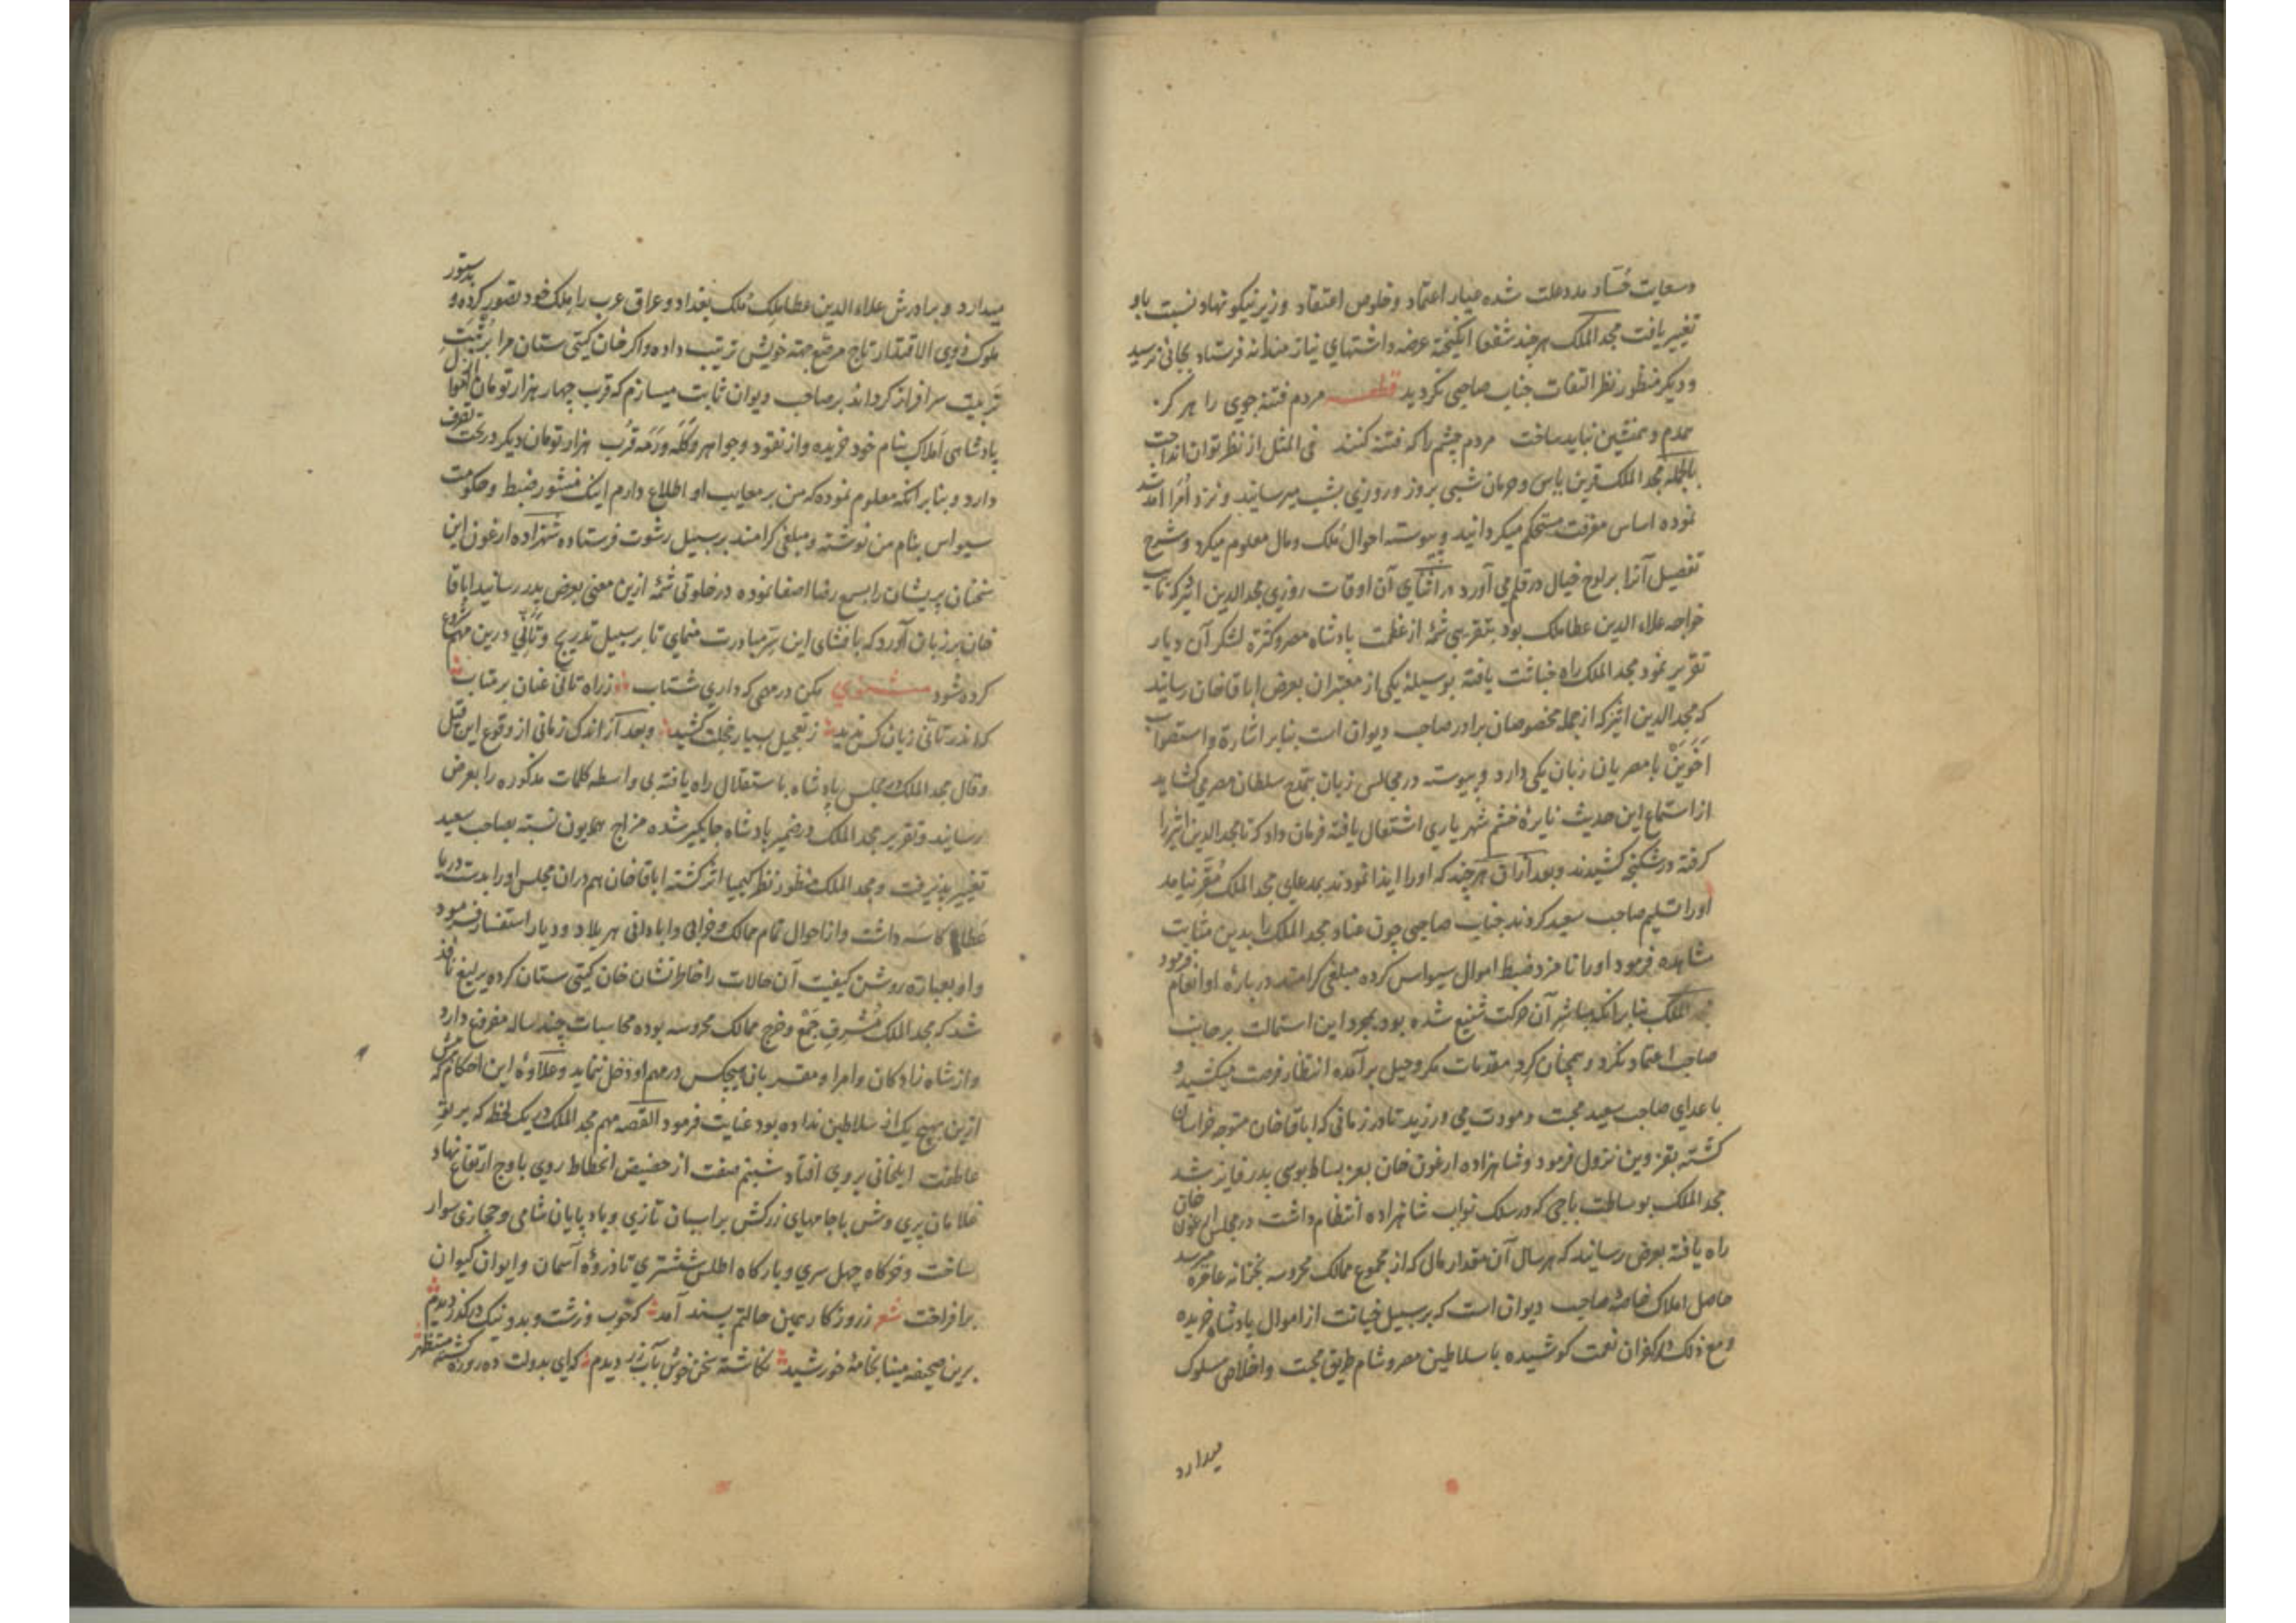 وسعایت حُسّاد مدد علت شده عیار اعتماد و خلوص اعتقاد وزیر نیکو نهاد نسبت باو
تغییر یافت مجد الملک هرچند شفعا انگیخته عرضه داشتهای نیازمندانه فرستاد بجائی نرسید
و دیگر منظور نظر التفات جناب صاحبی نگردید قطعـــه مردم فتنه جوی را هر کز
همدم و همنشین نباید ساخت مردم چشم را که فتنه کنند فی المثل از نظر توان انداخت
بالجمله مجد الملک قرین یاس و حرمان شبی بروز و روزی بشب میرسانید و نزد اُمَرا آمد شد
نموده اساس معرفت مستحکم میکردانید و پیوسته احوال مُلک و مال معلوم میکرد و شرح
تفصیل آنرا بر لوح خیال در قلم می آورد در اثنای آن اوقات روزی مجد الدین اثیر که نایب
خواجه علاء الدین عطاملک بود بتقریبی شمهٔ از عظمت پادشاه مصر و کثرة لشکر آن دیار
تقریر نمود مجد الملک راه خباثت یافته بوسیلهٔ یکی از معتبران بعرض اباقاخان رسانید
که مجد الدین اثیر که از جمله مخصوصان برادر صاحب دیوان است بنابر اشارة و استصواب
اَخَوَیْن با مصریان زبان یکی دارد و پیوسته در مجالس زبان بمدح سلطان مصر می کشاید
از استماع این حدیث نایرهٔ خشم شهریاری اشتعال یافته فرمان داد که تا مجد الدین اثیر را
کرفته در شکنجه کشیدند و بعد از آن هرچند که اورا ایذا نمودند بمدعای مجد الملک مُقر نیامد
اورا تسلیم صاحب سعید کردند جناب صاحبی چون عناد مجد الملک را بدین مثابت
مشاهده فرمود اورا نامزد ضبط اموال سیواس کرده مبلغی کرامند در بارهٔ او انعام فرمود
مجد الملک بنابر انکه مباشر آن حرکت شنیع شده بود بمجرد این استمالت بر جانب
صاحب اعتماد نکرد و همچنان کرد مقدمات مکر و حیل برآمده انتظار فرصت میکشید و
با عدای صاحب سعید محبت و مودت می ورزید تا در زمانی که اباقاخان متوجه خراسان
کشته بقزوین نزول فرمود و شاهزاده ارغون خان بعز بساط بوسی پدر فایز شد
مجد الملک بوساطت یاجی که در سلک نواب شاهزاده انتظام داشت در مجلس ارغون خان
راه یافته بعرض رسانید که هر سال آن مقدار مال که از مجموع ممالک محروسه بخزانه عامره میرسد
حاصل املاک خاصهٔ صاحب دیوان است که بر سبیل خیانت از اموال پادشاه خریده
و مع ذلک در کفران نعمت کوشیده با سلاطین مصر و شام طریق محبت و اخلاص مسلوک
میدارد
میدارد و برادرش علاء الدین عطاملک مُلک بغداد و عراق عرب را ملک خود تصور کرده و بدستور
ملوک ذوی الاقتدار تاج مرصع جهته خویش ترتیب داده و اکر خان کیتی ستان مرا برُتبت
تربیت سرافراز کرداند بر صاحب دیوان ثابت میسازم که قرب چهار هزار تومان از اموال
پادشاهی اَملاک بنام خود خریده و از نقود و جواهر و کَلّه و رَمَه قُرب هزار تومان دیکر در تحت تصرف
دارد و بنابر انکه معلوم نموده که من بر معایب او اطلاع دارم اینک منشور ضبط و حکومت
سیواس بنام من نوشته و مبلغی کرامند بر سبیل رشوت فرستاده شهزاده ارغون این
سخنان پریشان را بسمع رضا اصغا نموده در خلوتی شمهٔ ازین معنی بعرض پدر رسانید اباقا
خان بر زبان آورد که بافشای این سِرّ مبادرت منمای تا بر سبیل تدریج و تأنّی درین مهم شروع
کرده شود مثنـــوی مکن در مهمی که داری شتاب ز راه تأنی عنان بر متاب
که اندر تأنی زیان کس ندید ز تعجیل بسیار خجلت کشید و بعد از اندک زمانی از وقوع این قیل
وقال مجد الملک در مجلس پادشاه باستقلال راه یافته بی واسطه کلمات مذکوره را بعرض
رسانید و تقریر مجد الملک در ضمیر پادشاه جایکیر شده مزاج همایون نسبته بصاحب سعید
تغییر پذیرفت و مجد الملک منظور نظر کیمیا اثر کشته اباقاخان هم دران مجلس اورا بدست دریا
عَطا کاسه داشت و از احوال تمام ممالک و خرابی و ابادانی هر بلاد و دیار استفسار فرمود
و او بعبارة روشن کیفیت آن حالات را خاطر نشان خان کیتی ستان کرده یرلیغ نافذ
شد که مجد الملک مُشرِف جَمْع و خرج ممالک محروسه بوده محاسبات چند ساله مفروغ دارد
و از شاه زادکان و امرا و مقربان هیچکس در مهم او دخل ننماید و علاوهٔ این احکام که پیش
ازین هیچ یک از سلاطین نداده بود عنایت فرمود القصه مهم مجد الملک در یک لحظه که پرتو
عاطفت ایلخانی بر وی افتاد شبنم صفت از حضیض انحطاط روی باوج ارتفاع نهاد
غلامان پری وش با جامهای زرکش بر اسبان تازی و باد پایان شامی و حجازی سوار
ساخت و خرکاه چهل سری و بارکاه اطلس ششتری تا ذروهٔ آسمان و ایوان کیوان
برافراخت شعر ز روزکار همین حالتم پسند آمد که خوب و زشت و بد و نیک در کذر دیدم
برین صحیفه مینا بخامهٔ خورشید نکاشته سخن خوش بآب زر دیدم که ای بدولت ده روزه کشته مستظهر